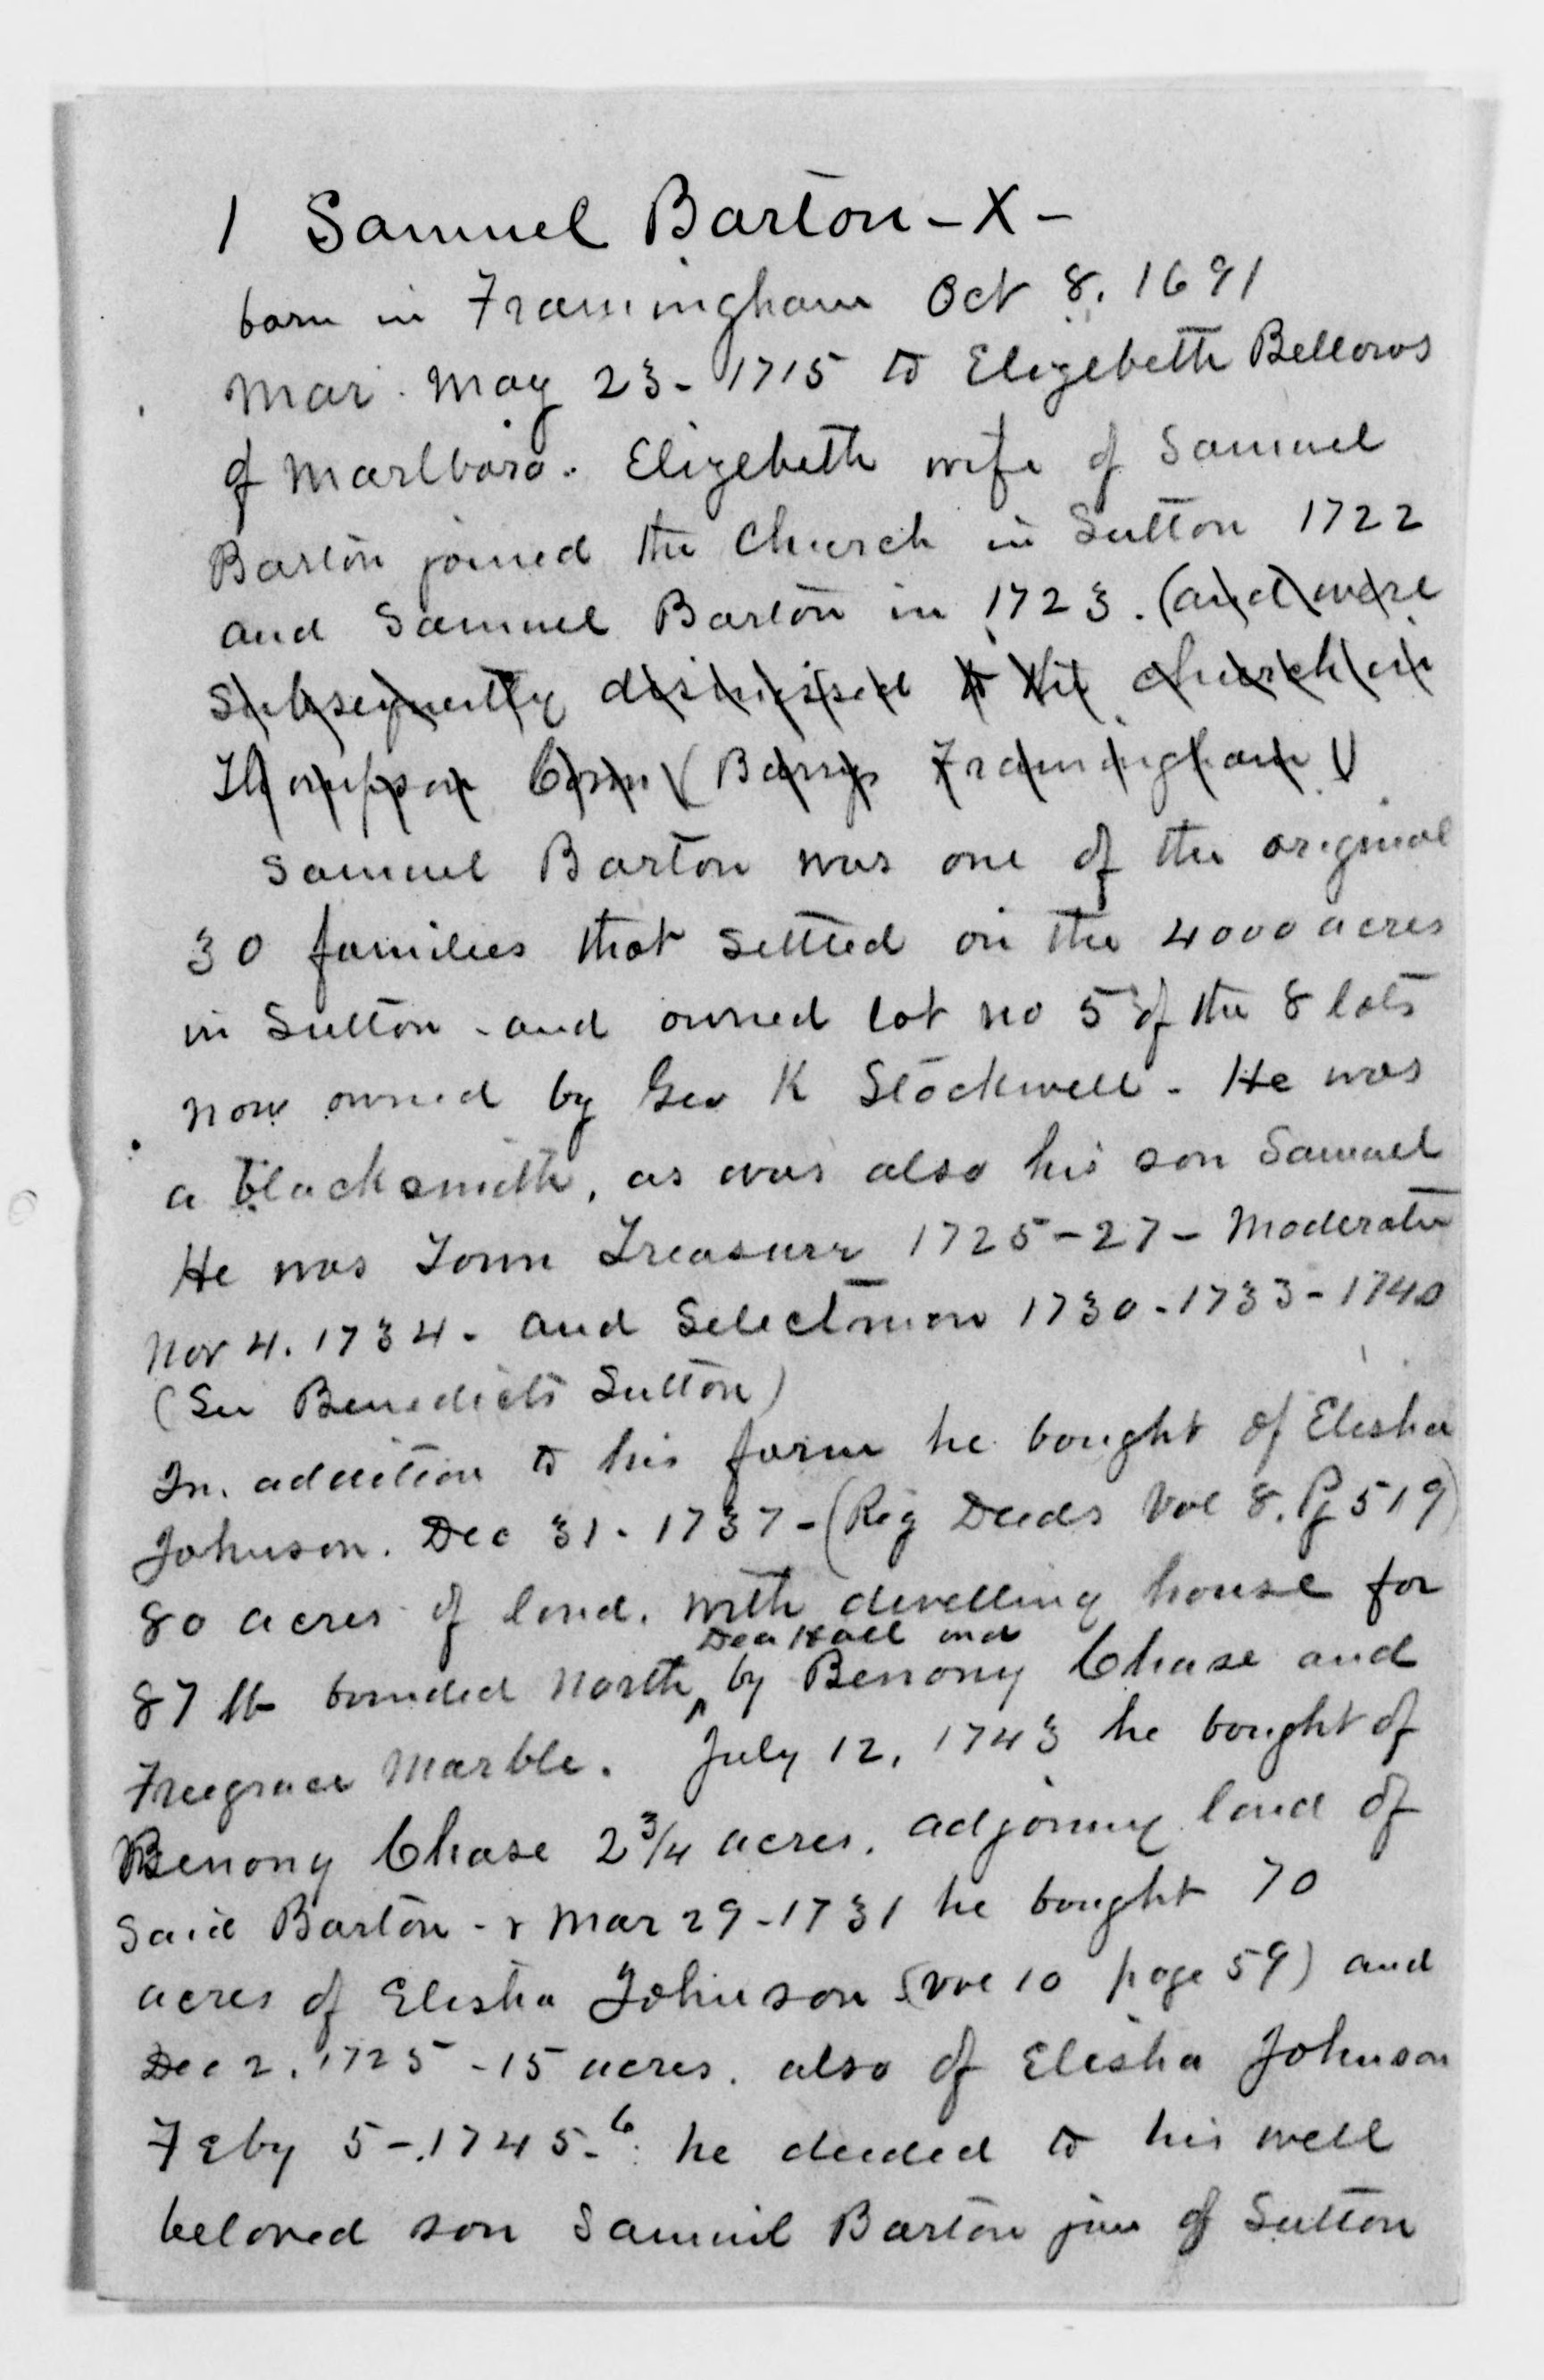 1 Samuel Barton - X -
born in Framingham Oct 8. 1691
Mar. May 23 - 1715 to Elizebeth Bellows
of Marlboro. Elizebeth wife of Samuel
Barton joined the Church in Sutton 1722
and Samuel Barton in 1723. (and were
Subsequently dismissed to the church in
Thompson Conn (Barrys Framingham))
Samuel Barton was one of the original
30 families that settled on the 4000 acres
in Sutton - and owned lot no 5 of the 8 lots
now owned by Geo K Stockwell - He was
a blacksmith, as was also his son Samuel
He was Town Treasurer 1725-27 - Moderator
Nov 4. 1734 - and Selectman 1730-1733-1740
(See Benedicts Sutton)
In addition to his farm he bought of Elisha
Johnson. Dec 31 - 1737 - (Reg Deeds Vol 8. Pg 519)
80 acres of land. with dwelling house for
Dea Hall and
87 lb bounded North ^ by Benony Chase and
Freegrace Marble. July 12, 1743 he bought of
Benony Chase 2 3/4 acres. adjoining land of
Said Barton - & Mar 29 - 1731 he bought 70
acres of Elisha Johnson (Vol 10 page 59) and
Dec 2. 1725 - 15 acres. also of Elisha Johnson
Feby 5 - 1745-6. he deeded to his well
beloved son Samuel Barton jun of Sutton